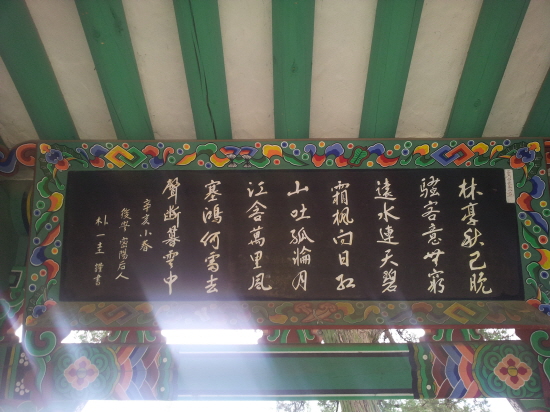 林亭秋已晩
騷客意無窮
遠水連天碧
霜楓向日紅
山吐孤輪月
江含萬里風
塞鴻何處去
聲斷暮雲中
辛亥小春
後學 密陽后人
朴一圭 謹書